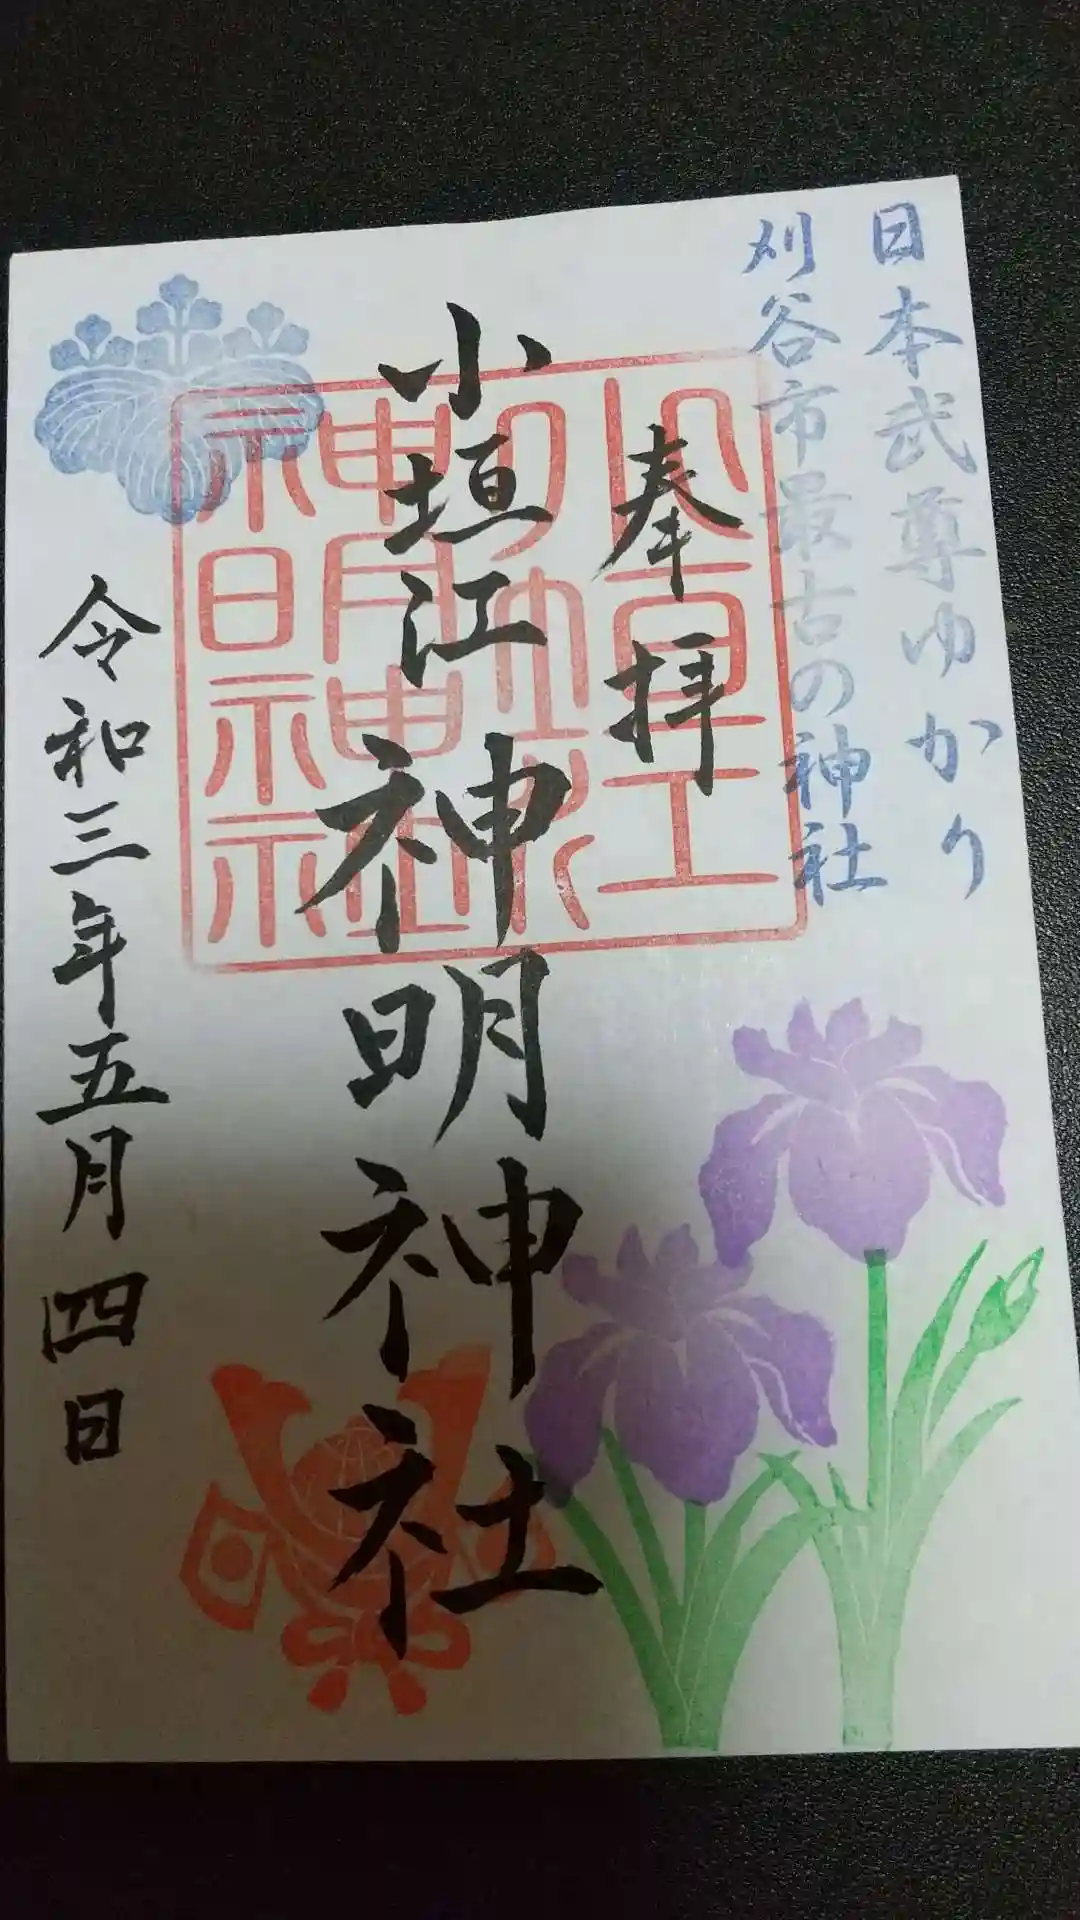 日本武尊ゆかり
刈谷市最古の神社
奉拝
小垣江神明神社
令和三年五月四日